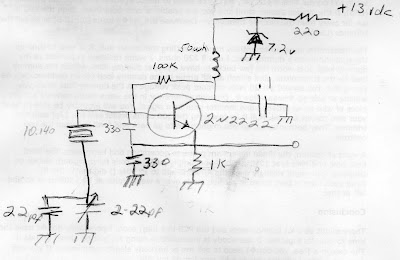 +13vdc
220
50uh
7.2v
100K
.1
10.140
330
2N2222
330
1K
22pf
2-22pf